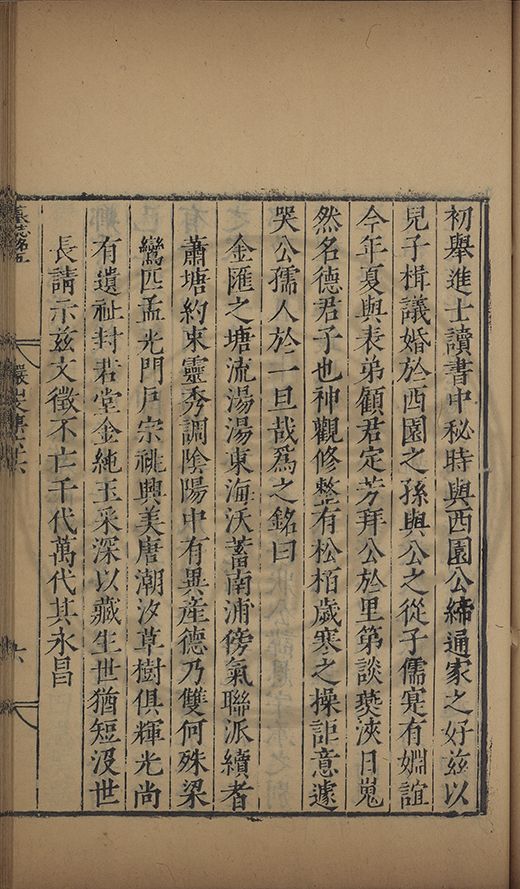 初舉進士讀書中秘時與西園公締通家之好茲以
兒子楫議婚於西園之孫與公之從子儒寔有婣誼
今年夏與表弟顧君定芳拜公於里第談燕浹日嵬
然名德君子也神觀修整有松栢歲寒之操詎意遽
哭公孺人於一旦哉爲之銘曰
金匯之塘流湯湯東海沃蓄南浦傍氣聯派續者
蕭塘約束靈秀調陰陽中有異產德乃雙何殊梁
鸞匹孟光門戶宗祧興美唐潮汐草樹俱輝光尚
有遺祉封君堂金純玉采深以藏生世猶短沒世
長請示茲文徵不亡千代萬代其永昌